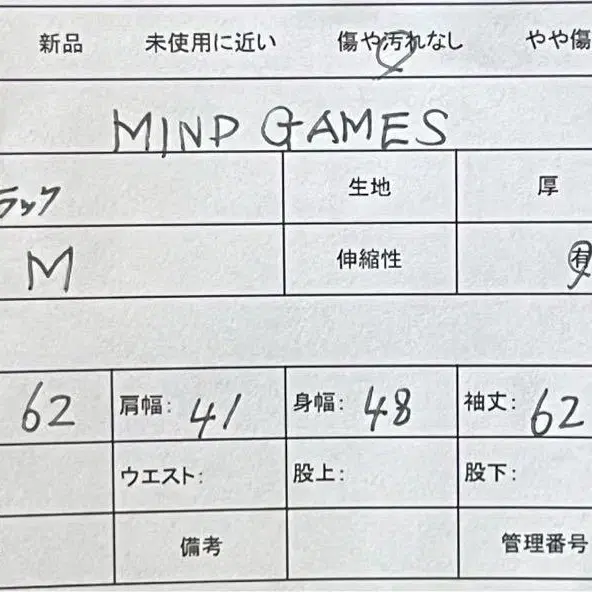 新品 未使用に近い 傷や汚れなし やや傷
MIND GAMES
ラック 生地 厚
M 伸縮性 有
62 肩幅: 41 身幅: 48 袖丈: 62
ウエスト: 股上: 股下:
備考 管理番号